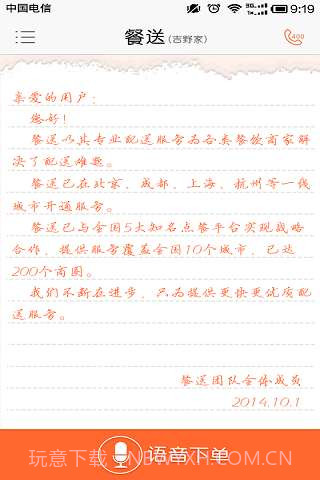 中国电信 3G 1X 9:19
餐送(吉野家) 400
亲爱的用户：
您好！
餐送以其专业配送服务为各类餐饮商家解
决了配送难题。
餐送已在北京、成都、上海、杭州等一线
城市开通服务。
餐送已与全国5大知名点餐平台实现战略
合作，提供服务覆盖全国10个城市，已达
200个商圈。
我们不断在进步，只为提供更快更优质配
送服务。
餐送团队全体成员
2014.10.1
语音下单
玩意下载 WWW.NEWYXH.COM.CN